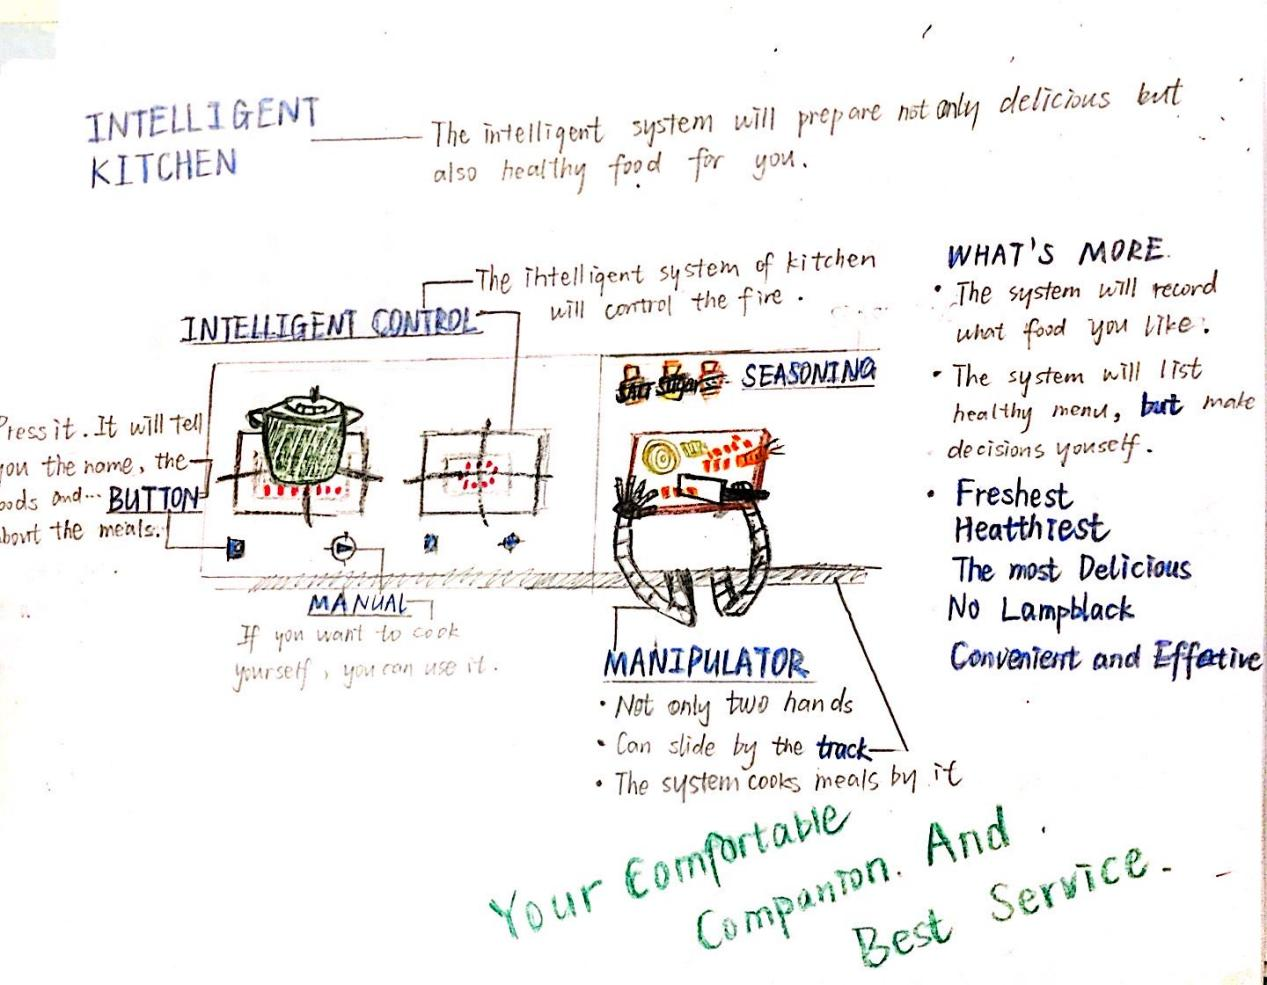 INTELLIGENT
KITCHEN
The intelligent system will prepare not only delicious but
also healthy food for you.
The intelligent system of kitchen
will control the fire.
INTELLIGENT CONTROL
Press it. It will tell
you the name, the
oods and...
BUTTON
about the meals.
MANUAL
If you want to cook
yourself, you can use it.
SALT Sugars
SEASONING
MANIPULATOR
• Not only two hands
• Can slide by the track
• The system cooks meals by it
WHAT'S MORE.
• The system will record
what food you like.
• The system will list
healthy menu, but make
decisions youself.
• Freshest
Heatthiest
The most Delicious
No Lampblack
Convenient and Effective
Your Comfortable
Companion. And
Best Service.